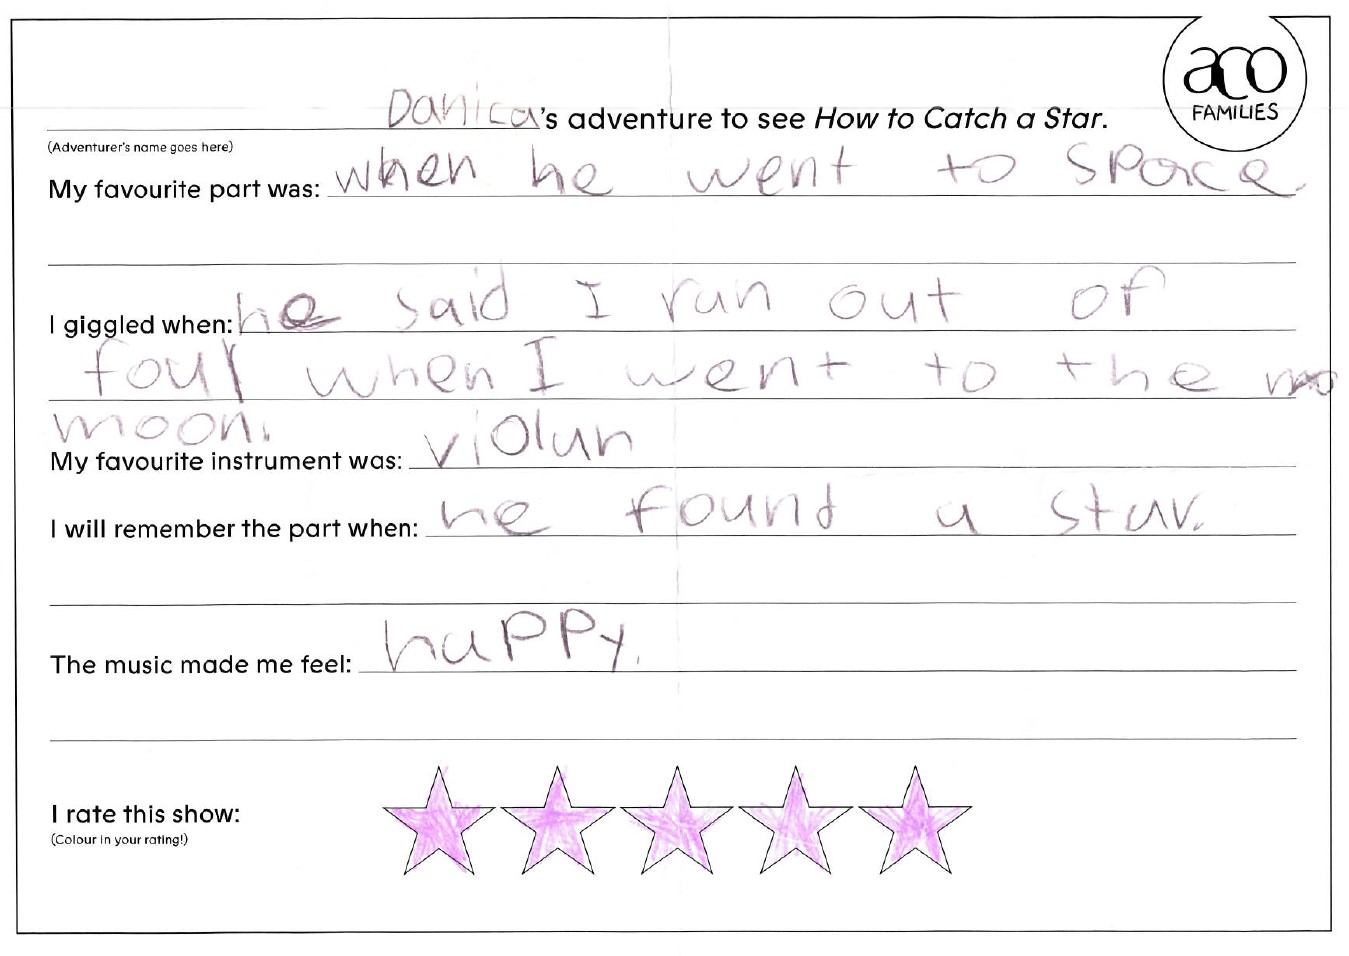 aco
FAMILIES
Danica's adventure to see How to Catch a Star.
(Adventurer's name goes here)
My favourite part was: when he went to space.
I giggled when: he said I run out of
foul when I went to the mo
moon.
My favourite instrument was: violun
I will remember the part when: he found a star.
The music made me feel: happy.
I rate this show:
(Colour in your rating!)